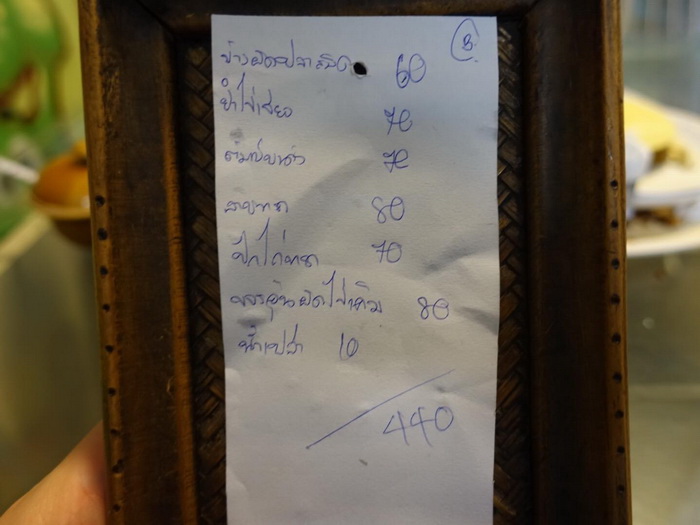 3
ข้าวผัดปลาสลิด 60
ยำไข่เยี่ยว 70
70
ลาบทอด 80
ปีกไก่ทอด 70
ผัดไข่เค็ม 80
น้ำเปล่า 10
440